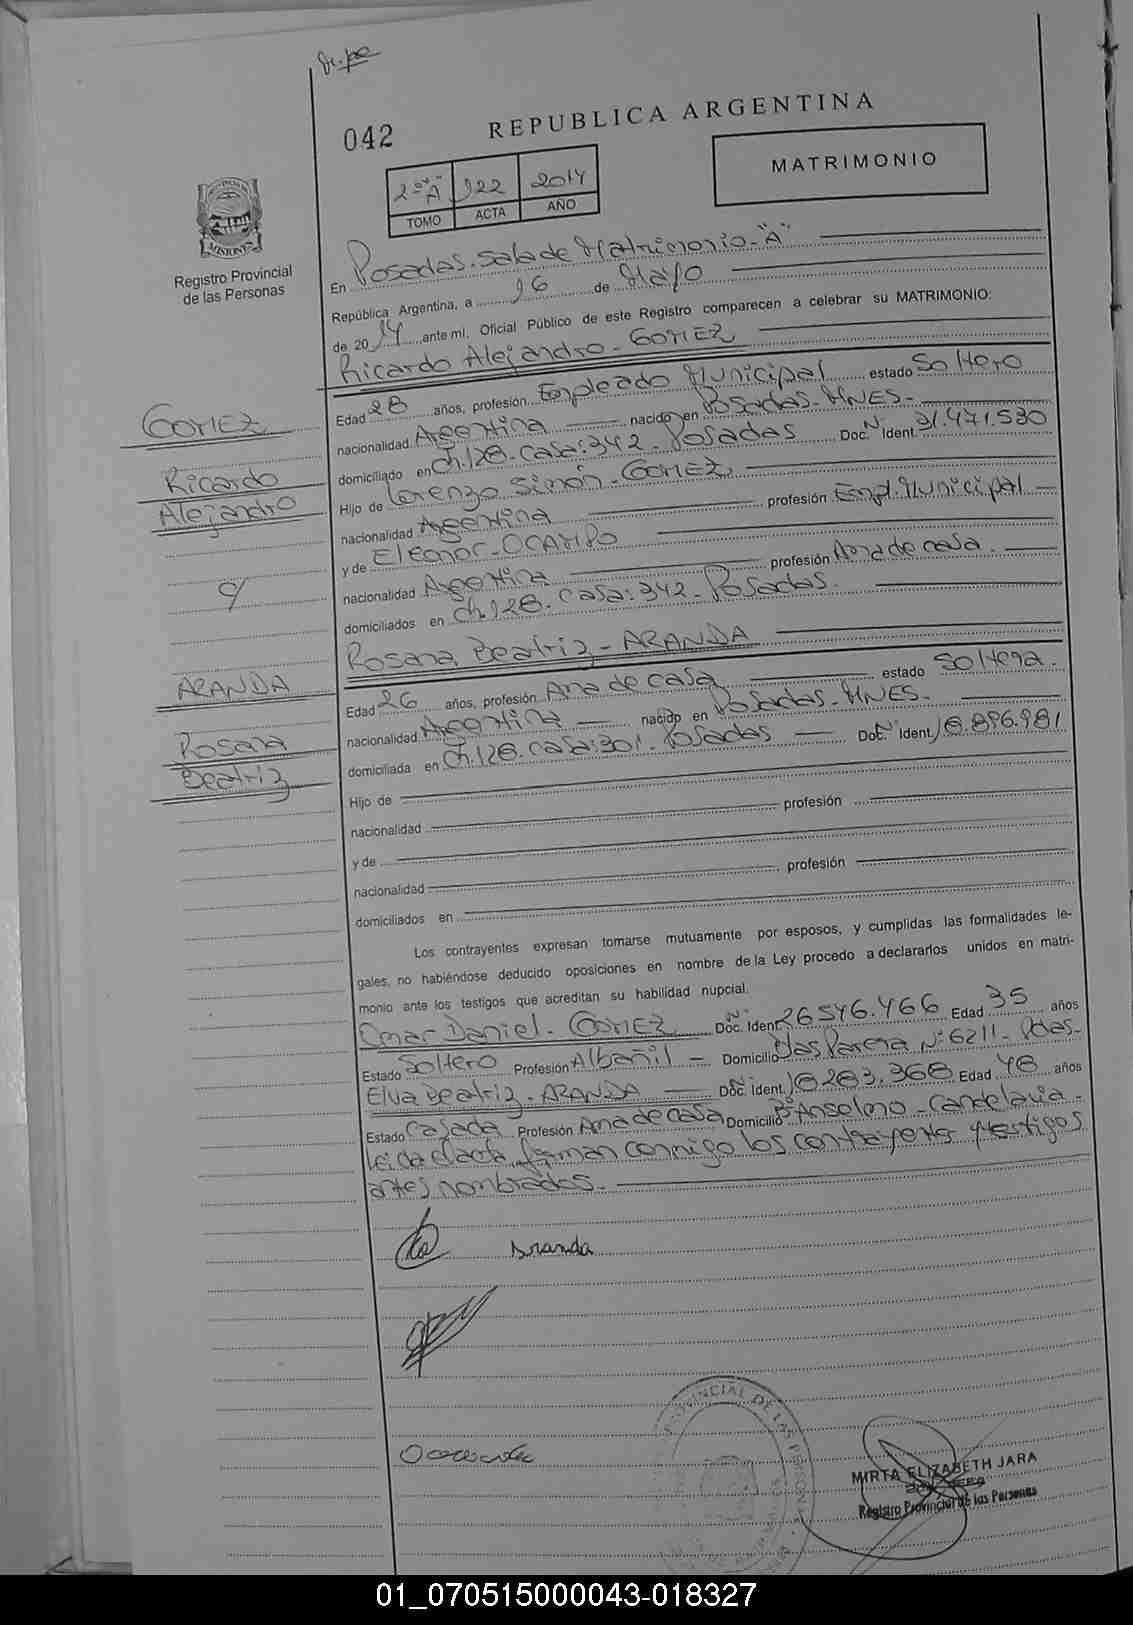 042
REPUBLICA ARGENTINA
MATRIMONIO
2º "A" 122 2014
TOMO ACTA AÑO
MISIONES
Registro Provincial
de las Personas
En Posadas. Sala de Matrimonio. "A"
República Argentina, a 16 de Mayo
de 2014 ante mí, Oficial Público de este Registro comparecen a celebrar su MATRIMONIO:
Ricardo Alejandro - GOMEZ
Edad 28 años, profesión Empleado Municipal estado Soltero
nacionalidad Argentina nacido en Posadas - MNES -
domiciliado en Ch. 128. Casa: 342. Posadas Doc. Nº Ident. 31.471.530
Hijo de Lorenzo Simón - GOMEZ
nacionalidad Argentina profesión Empl. Municipal
y de Eleonor - OCAMPO
nacionalidad Argentina profesión Ama de casa.
domiciliados en Ch. 128. Casa: 342. Posadas.
Rosana Beatriz - ARANDA
Edad 26 años, profesión Ama de casa estado Soltera.
nacionalidad Argentina nacido en Posadas - MNES -
domiciliada en Ch. 128. Casa: 301. Posadas Doc. Nº Ident. 18.896.981
Hijo de
nacionalidad profesión
y de
nacionalidad profesión
domiciliados en
GOMEZ
Ricardo
Alejandro
c/
ARANDA
Rosana
Beatriz
Los contrayentes expresan tomarse mutuamente por esposos, y cumplidas las formalidades le-
gales, no habiéndose deducido oposiciones en nombre de la Ley procedo a declararlos unidos en matri-
monio ante los testigos que acreditan su habilidad nupcial.
Omar Daniel - GOMEZ Doc. Nº Ident. 26546.466 Edad 35 años
Estado Soltero Profesión Albañil - Domicilio Nº 6211 - Pdas.
Elva Beatriz - ARANDA Doc. Nº Ident. 18283.368 Edad 48 años
Estado Casada Profesión Ama de casa Domicilio Bº Anselmo - Candelaria -
Leida el acta, firman conmigo los contrayentes y testigos
antes nombrados -
Aranda
PROVINCIAL DE LAS PERSONAS
MIRTA ELIZABETH JARA
Registro Provincial de las Personas
01_070515000043-018327